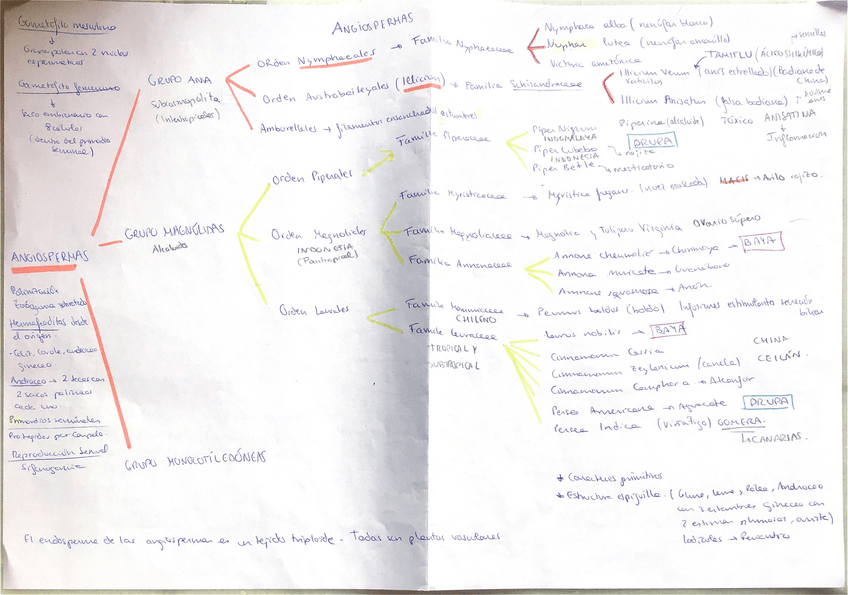 ANGIOSPERMAS
Gametofito masculino
Grano polen con 2 núcleos
espermáticos
Gametofito femenino
Saco embrionario con
8 células
(dentro del primordio
seminal)
ANGIOSPERMAS
Polinización
Zoógama
Hermafroditas desde
el origen
Cáliz, Corola, androceo
gineceo
Androceo → 2 tecas con
2 sacos polínicos
cada uno
Primordios seminales
Protegidos por Carpelo
Reproducción Sexual
Sifonogamia
GRUPO ANA
Subcosmopolita
(Intertropicales)
Orden Nymphaeales → Familia Nymphaeaceae
Nymphaea alba (nenúfar blanco)
Nuphar lutea (nenúfar amarillo)
Victoria amazónica
Orden Austrobaileyales (Illicium) → Familia Schisandraceae
TAMIFLU
Illicium verum (anís estrellado) (Badiana de
China)
Illicium Anisatum (falsa badiana)
Tóxico ANISATINA
Inflamación
Amborellales → filamentos ensanchados estambres
GRUPO MAGNÓLIDAS
Orden Piperales
Familia Piperaceae
Piperina (alcaloide)
Piper Nigrum
Piper Cubeba
INDONESIA
DRUPA
Piper Betle → masticatorio
Orden Magnoliales
INDONESIA
(Pantropical)
Familia Myristicaceae → Myristica fragans (nuez moscada) MACIS → Arilo rojizo.
Familia Magnoliaceae → Magnolia y Tulipero Virginia Ovario súpero
Familia Annonaceae
Annona cherimolia → Chirimoya → BAYA
Annona muricata → Guanábana
Annona squamosa → Anón
Orden Laurales
Familia Monimiaceae → Peumus boldus (boldo) Infusiones estimulante secreción
biliar
CHILENO
Familia Lauraceae
TROPICAL Y
SUBTROPICAL
Laurus nobilis → BAYA
Cinnamomum Cassia CHINA
Cinnamomum Zeylanicum (canela) CEILÁN.
Cinnamomum Camphora → Alcanfor
Persea Americana → Aguacate DRUPA
Persea Indica (Viñátigo) GOMERA.
CANARIAS.
GRUPO MONOCOTILEDÓNEAS
* Caracteres primitivos
* Estructura espiguilla (Gluma, lema, Pálea, Androceo
con 3 estambres, gineceo con
2 estigmas plumosos, arista)
El endosperma de las angiospermas es un tejido triploide - Todas son plantas vasculares